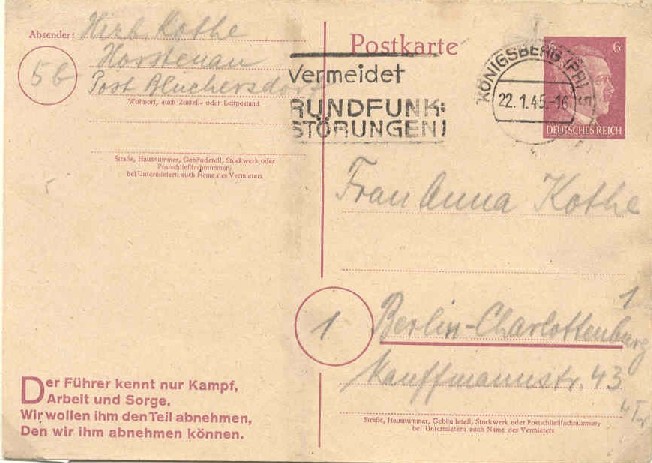 Absender: Hirb. Kothe
Horstenau
Post Blüchersdorf
5b
Wohnort, auch Zustell- oder Leitpostamt
Straße, Hausnummer, Gebäudeteil, Stockwerk oder
Postschließfachnummer;
bei Untermietern auch Name des Vermieters
Der Führer kennt nur Kampf,
Arbeit und Sorge.
Wir wollen ihm den Teil abnehmen,
Den wir ihm abnehmen können.
Postkarte
Vermeidet
RUNDFUNK:
STÖRUNGEN!
KÖNIGSBERG (PR)
22.1.45.-16
6
DEUTSCHES REICH
Frau Anna Kothe
1
1
Berlin-Charlottenburg
Kauffmannstr. 43
Straße, Hausnummer, Gebäudeteil, Stockwerk oder Postschließfachnummer;
bei Untermietern auch Name des Vermieters